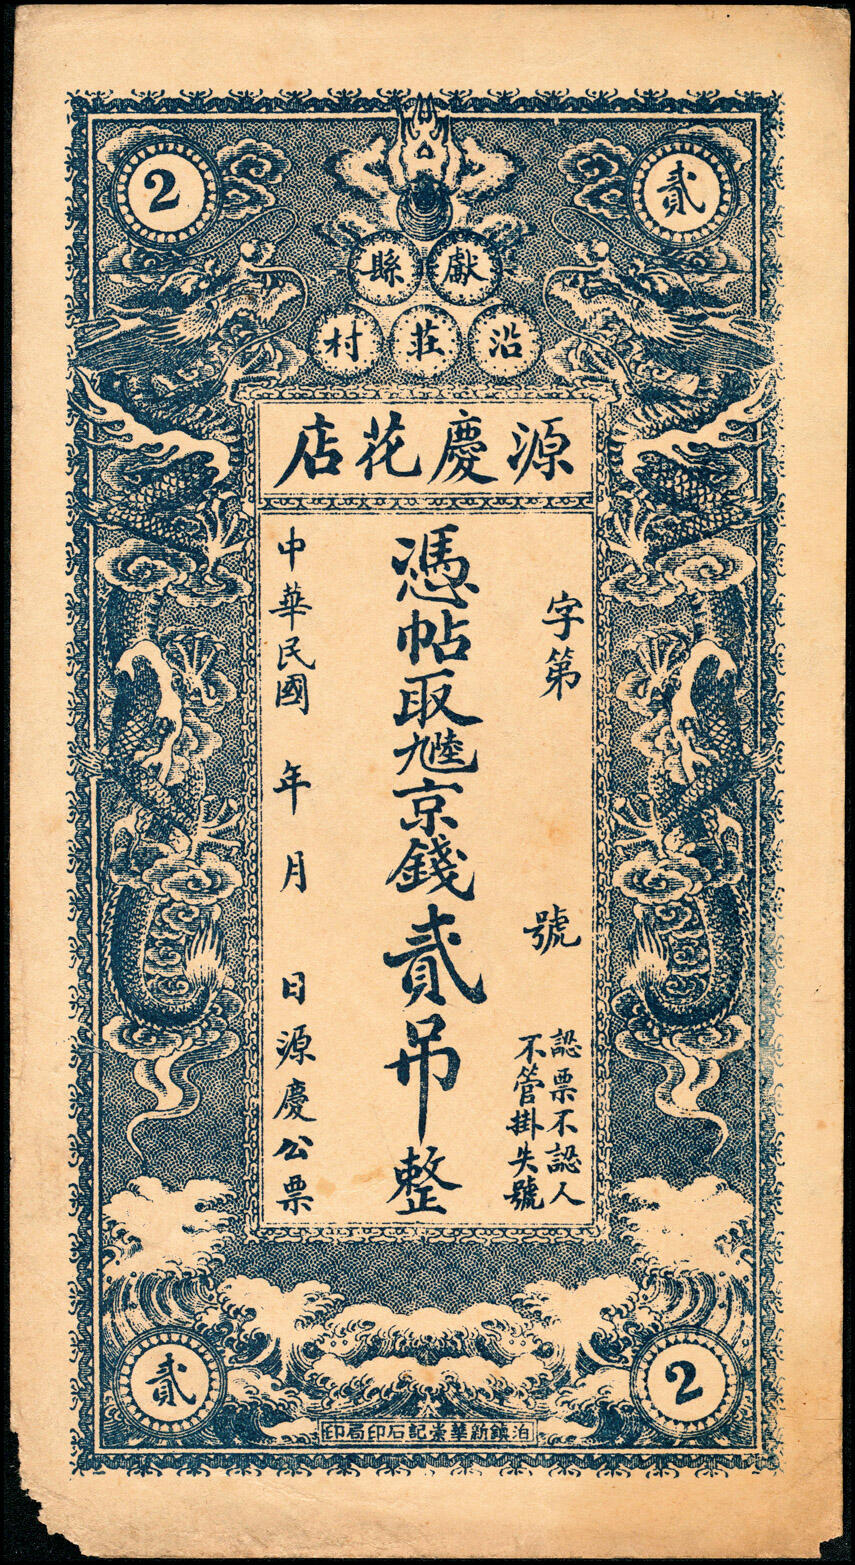 2
貳
獻縣
沿莊村
源慶花店
字第 號
認票不認人
不管掛失號
憑帖取九陸京錢貳吊整
中華民國 年 月 日源慶公票
貳
2
泊鎮新華記石印局印